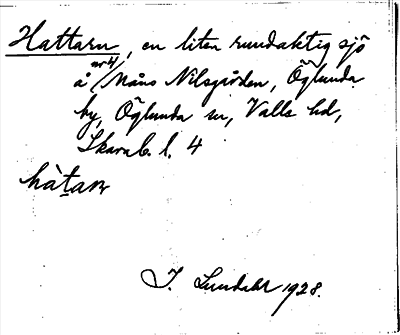 Hattarn, en liten rundaktig sjö
å nr 4/ Måns Nilsgården, Öglunda
by, Öglunda sn, Valle hd,
Skarab. l. 4
hàtar
I. Lundahl 1928.